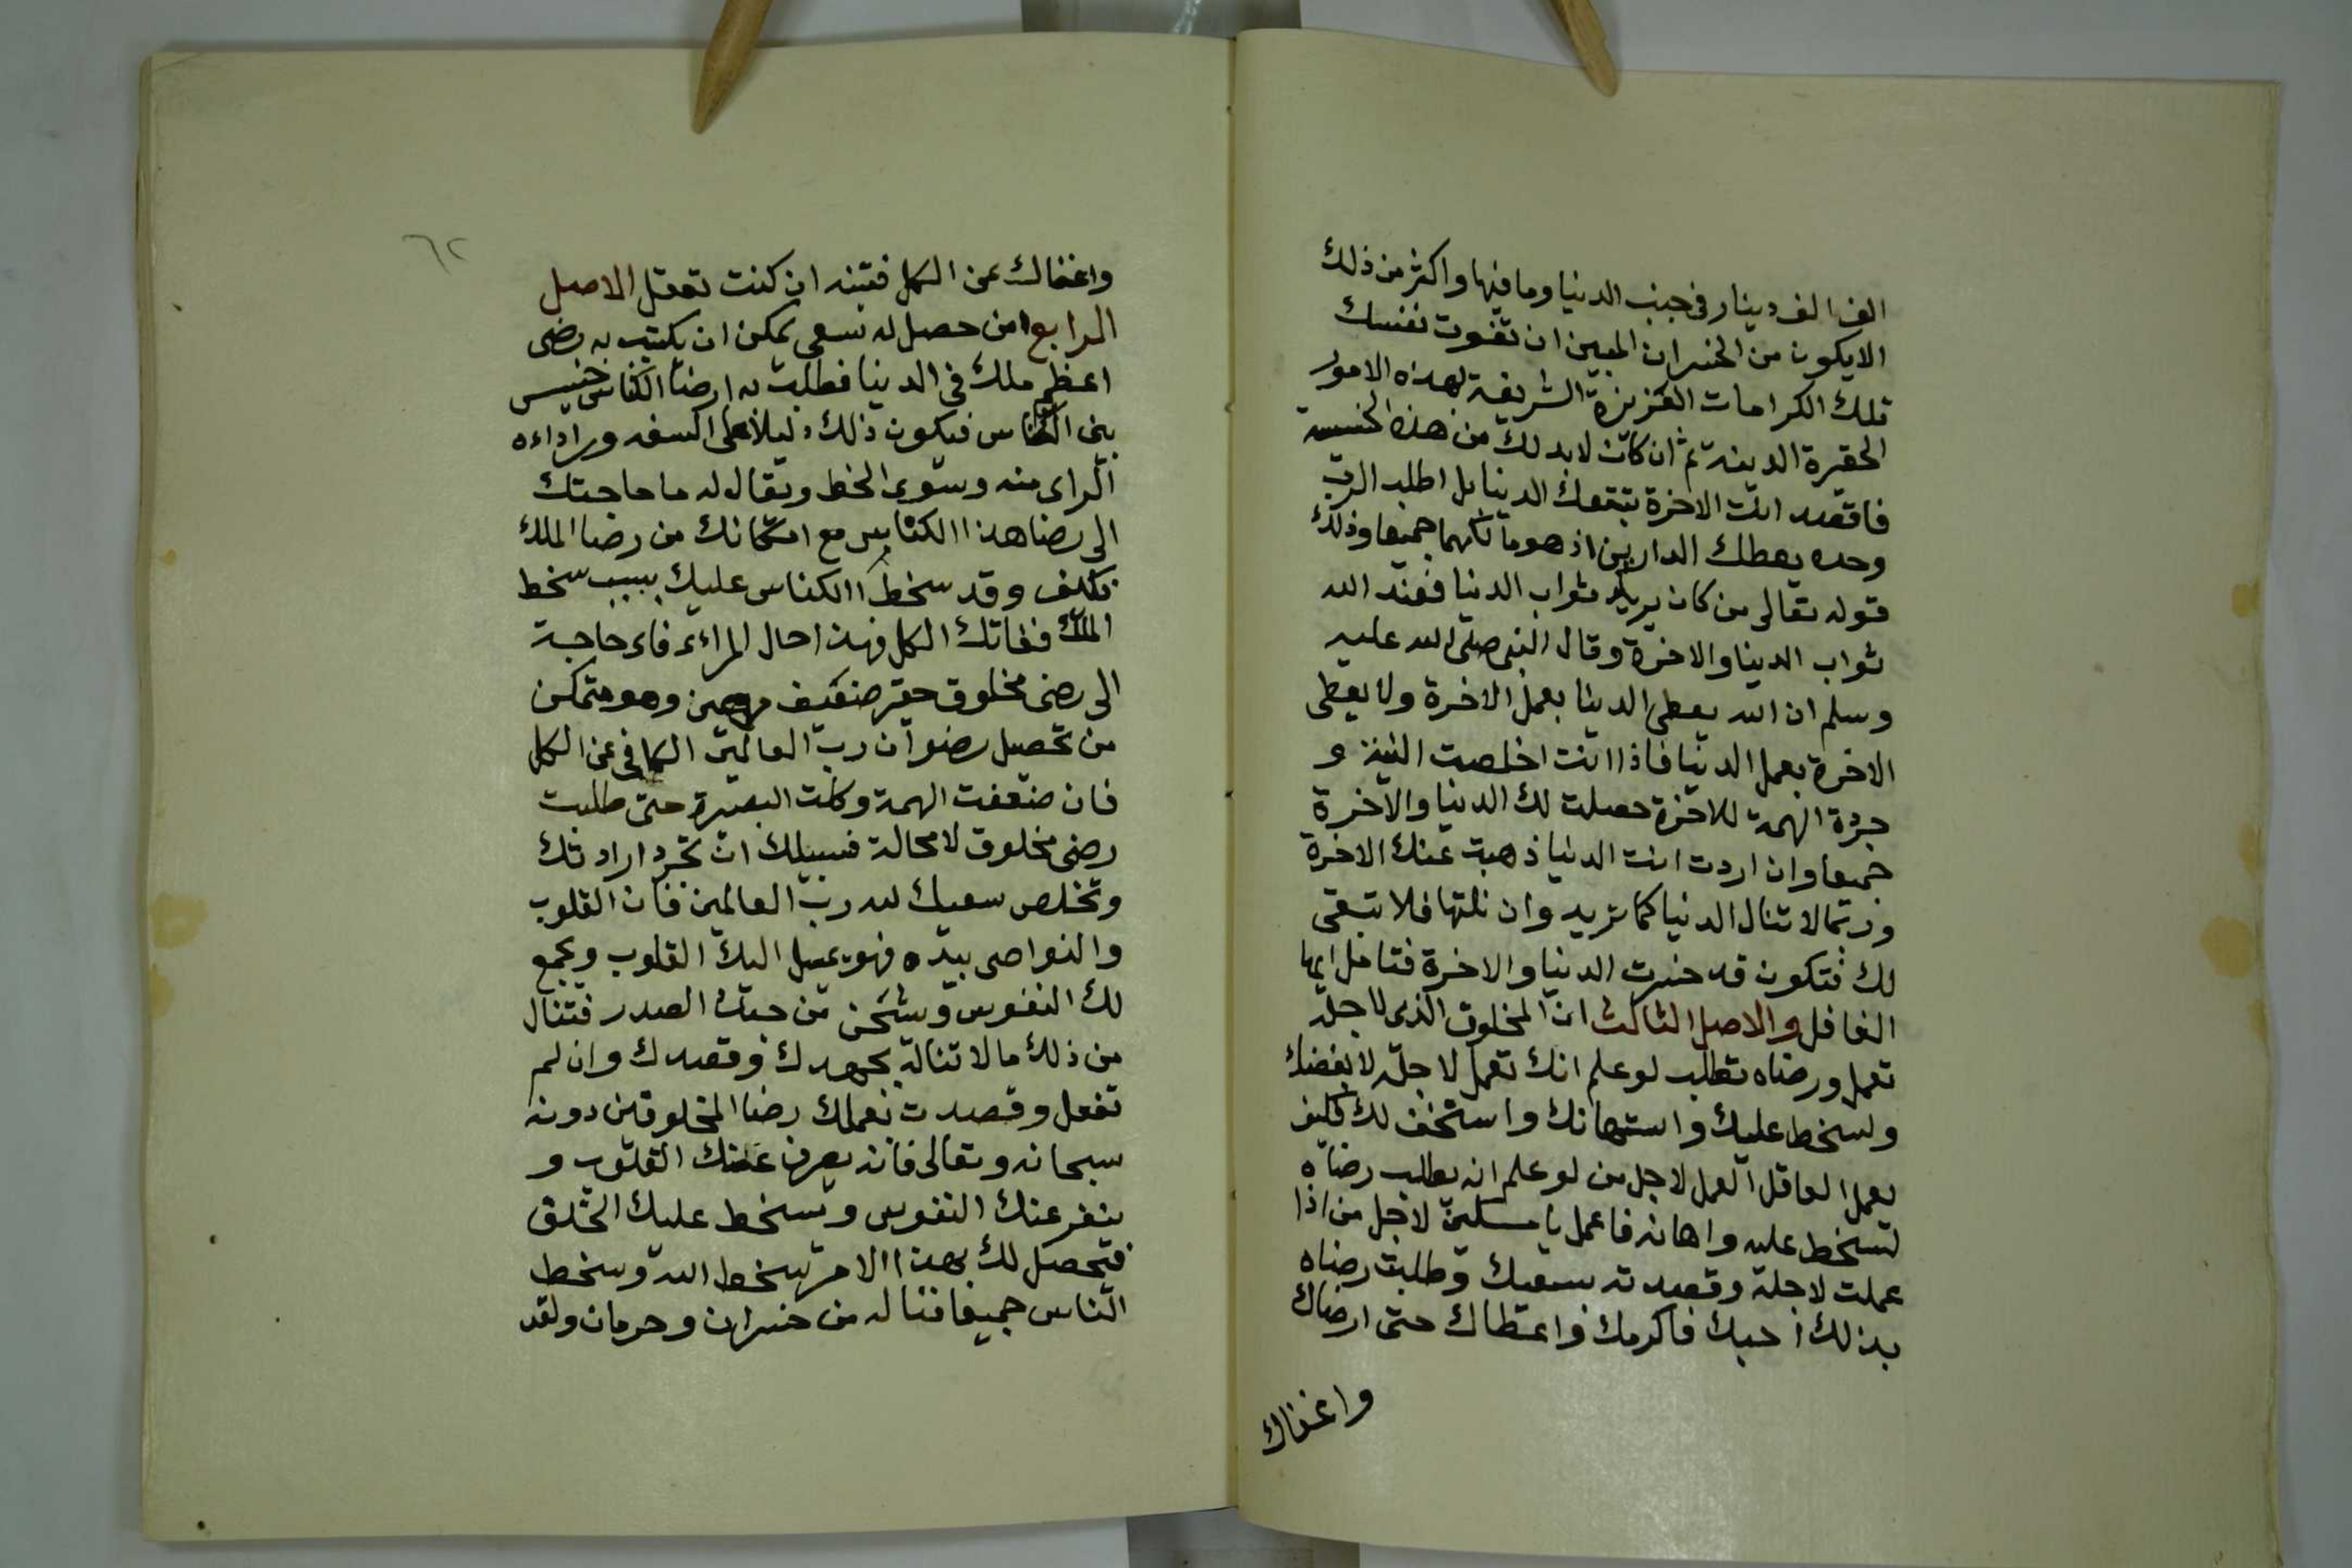 الف الف دينار في جنب الدنيا وما فيها واكثر من ذلك
الا يكون من الخسران المبين ان تفوت نفسك
تلك الكرامات العزيزة الشريفة لهذه الامور
الحقيرة الدينة ثم ان كانت لابد لك من هذه الخسسة
فاقصد انت الاخرة تتبعك الدنيا بل اطلب الرب
وحده يعطك الدارين اذ هو مالكهما جميعا وذلك
قوله تعالى من كان يريد ثواب الدنيا فعند الله
ثواب الدنيا والاخرة وقال النبي صلى الله عليه
وسلم ان الله يعطى الدنيا بعمل الاخرة ولا يعطى
الاخرة بعمل الدنيا فاذا انت اخلصت النية و
جردة الهمة للاخرة حصلت لك الدنيا والاخرة
جميعا وان اردت انت الدنيا ذهبت عنك الاخرة
وربما لا تنال الدنيا كما تريد وان نلتها فلا تبقى
لك فتكون قد خسرت الدنيا والاخرة فتامل ايها
الغافل والاصل الثالث ان المخلوق الذى لاجله
تعمل ورضاه تطلب لو علم انك تعمل لاجله لابغضك
ولسخط عليك واستهانك واستخف لك فكيف
يعمل العاقل العمل لاجل من لو علم انه يطلب رضاه
لسخط عليه واهانه فاعمل يا مسكين لاجل من اذا
عملت لاجله وقصدته بسعيك وطلبت رضاه
بذلك احبك فاكرمك واعطاك حتى ارضاك
واغناك
٦٢
واغناك عن الكل فتبنه ان كنت تعقل الاصل
الرابع ان من حصل له سعى يمكن ان يكتسب به رضى
اعظم ملك في الدنيا فطلب به ارضا الكناس خسيس
بين الناس فيكون ذلك دليلا على السفه ورداءه
الراى منه وسوى الخط ويقال له ما حاجتك
الى رضا هذا الكناس مع امكانك من رضا الملك
فكيف وقد سخط الكناس عليك بسبب سخط
الملك ففاتك الكل فهذا حال المراءى فاى حاجة
الى رضى مخلوق حقير ضعيف مهين وهو متمكن
من تحصيل رضوان رب العالمين الكافى عن الكل
فان ضعفت الهمة وكلت البصيرة حتى طلبت
رضى مخلوق لا محالة فسبيلك ان تجرد ارادتك
وتخلص سعيك لله رب العالمين فان القلوب
والنواصى بيده فهو يميل اليك القلوب ويجمع
لك النفوس وشحن من حبك الصدر فتنال
من ذلك ما لا تناله بجهدك وقصدك وان لم
تفعل وقصدت بعملك رضا المخلوقين دونه
سبحانه وتعالى فانه يصرف عنك القلوب و
ينفر عنك النفوس ويسخط عليك الخلق
فيحصل لك بهذا الامر سخط الله وسخط
الناس جميعا فيا له من خسران وحرمان ولقد